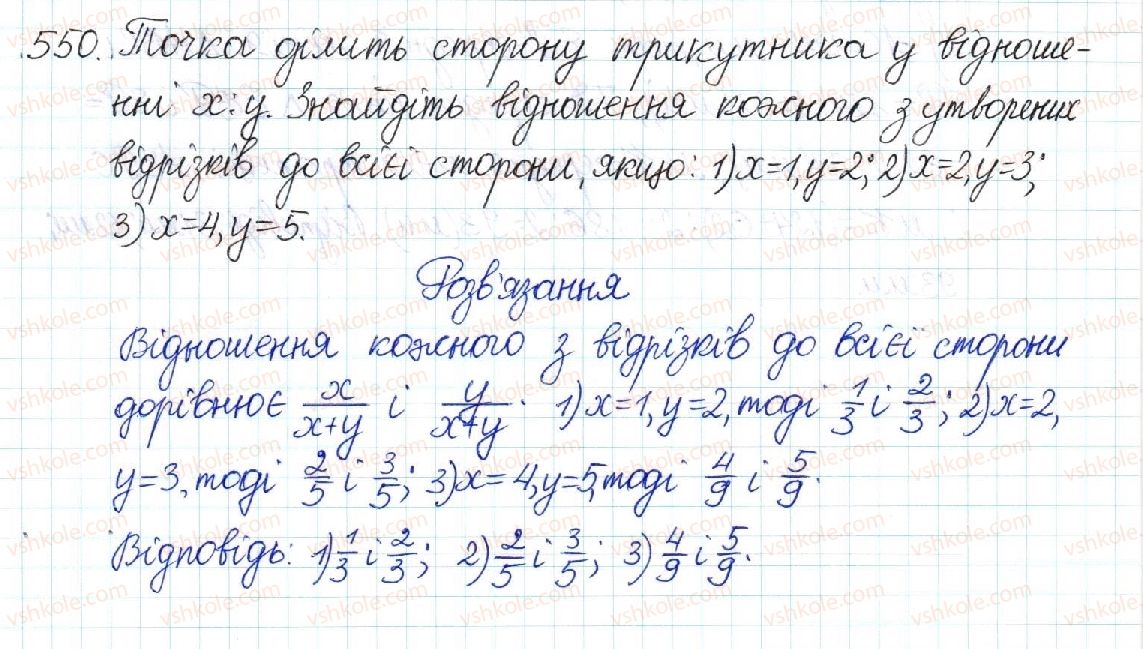 550. Точка ділить сторону трикутника у відноше-
нні x:y. Знайдіть відношення кожного з утворених
відрізків до всієї сторони, якщо: 1) x=1, y=2; 2) x=2, y=3;
3) x=4, y=5.
Розв'язання
Відношення кожного з відрізків до всієї сторони
дорівнює x/(x+y) і y/(x+y). 1) x=1, y=2, тоді 1/3 і 2/3; 2) x=2,
y=3, тоді 2/5 і 3/5; 3) x=4, y=5, тоді 4/9 і 5/9.
Відповідь: 1) 1/3 і 2/3; 2) 2/5 і 3/5; 3) 4/9 і 5/9.